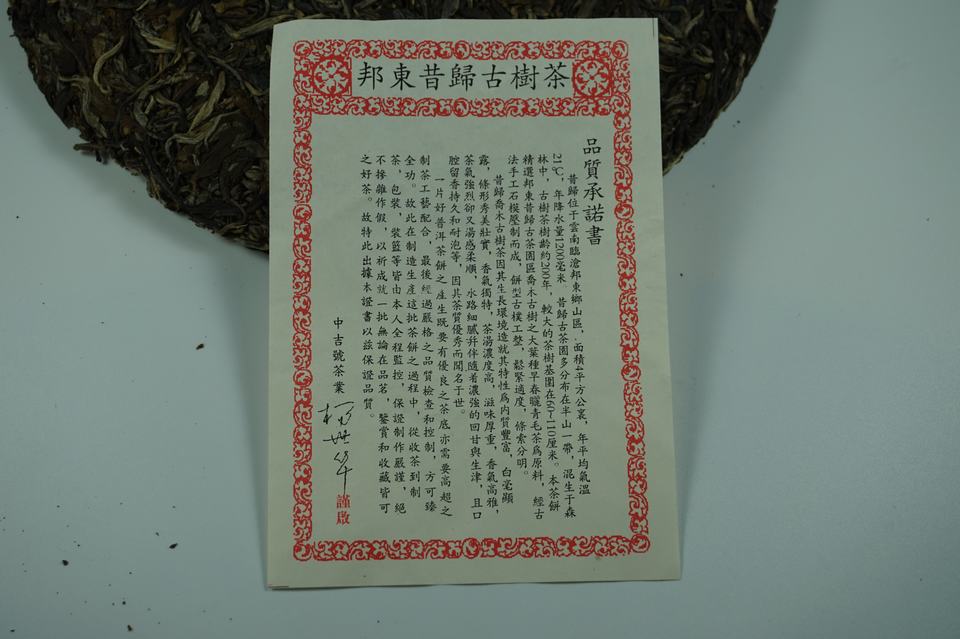 邦東昔歸古樹茶
品質承諾書
昔歸位于雲南臨滄邦東鄉山區，面積4平方公裏，年平均氣溫
21℃，年降水量1200毫米，昔歸古茶園多分布在半山一帶，混生于森
林中，古樹茶樹齡約200年，較大的茶樹基圍在60~110厘米。本茶餅
精選邦東昔歸古茶園區喬木古樹之大葉種早春曬青毛茶爲原料，經古
法手工石模壓制而成，餅型古樸工整，鬆緊適度，條索分明。
昔歸喬木古樹茶因其生長環境造就其特性爲内質豐富，白毫顯
露，條形秀美壯實，香氣獨特，茶湯濃度高，滋味厚重，香氣高雅，
茶氣強烈卻又湯感柔順，水路細膩并伴隨着濃強的回甘與生津，且口
腔留香持久和耐泡等，因其茶質優秀而聞名于世。
一片好普洱茶餅之産生既要有優良之茶底亦需要高超之
制茶工藝配合，最後經過嚴格之品質檢查和控制，方可臻
全功。故此在制造生産這批茶餅之過程中，從收茶到制
茶，包裝，裝籃等皆由本人全程監控，保證制作嚴謹，絕
不摻雜作假，以祈成就一批無論在品茗，鑒賞和收藏皆可
之好茶。故特此出據本證書以茲保證品質。
中吉號茶業
謹啟